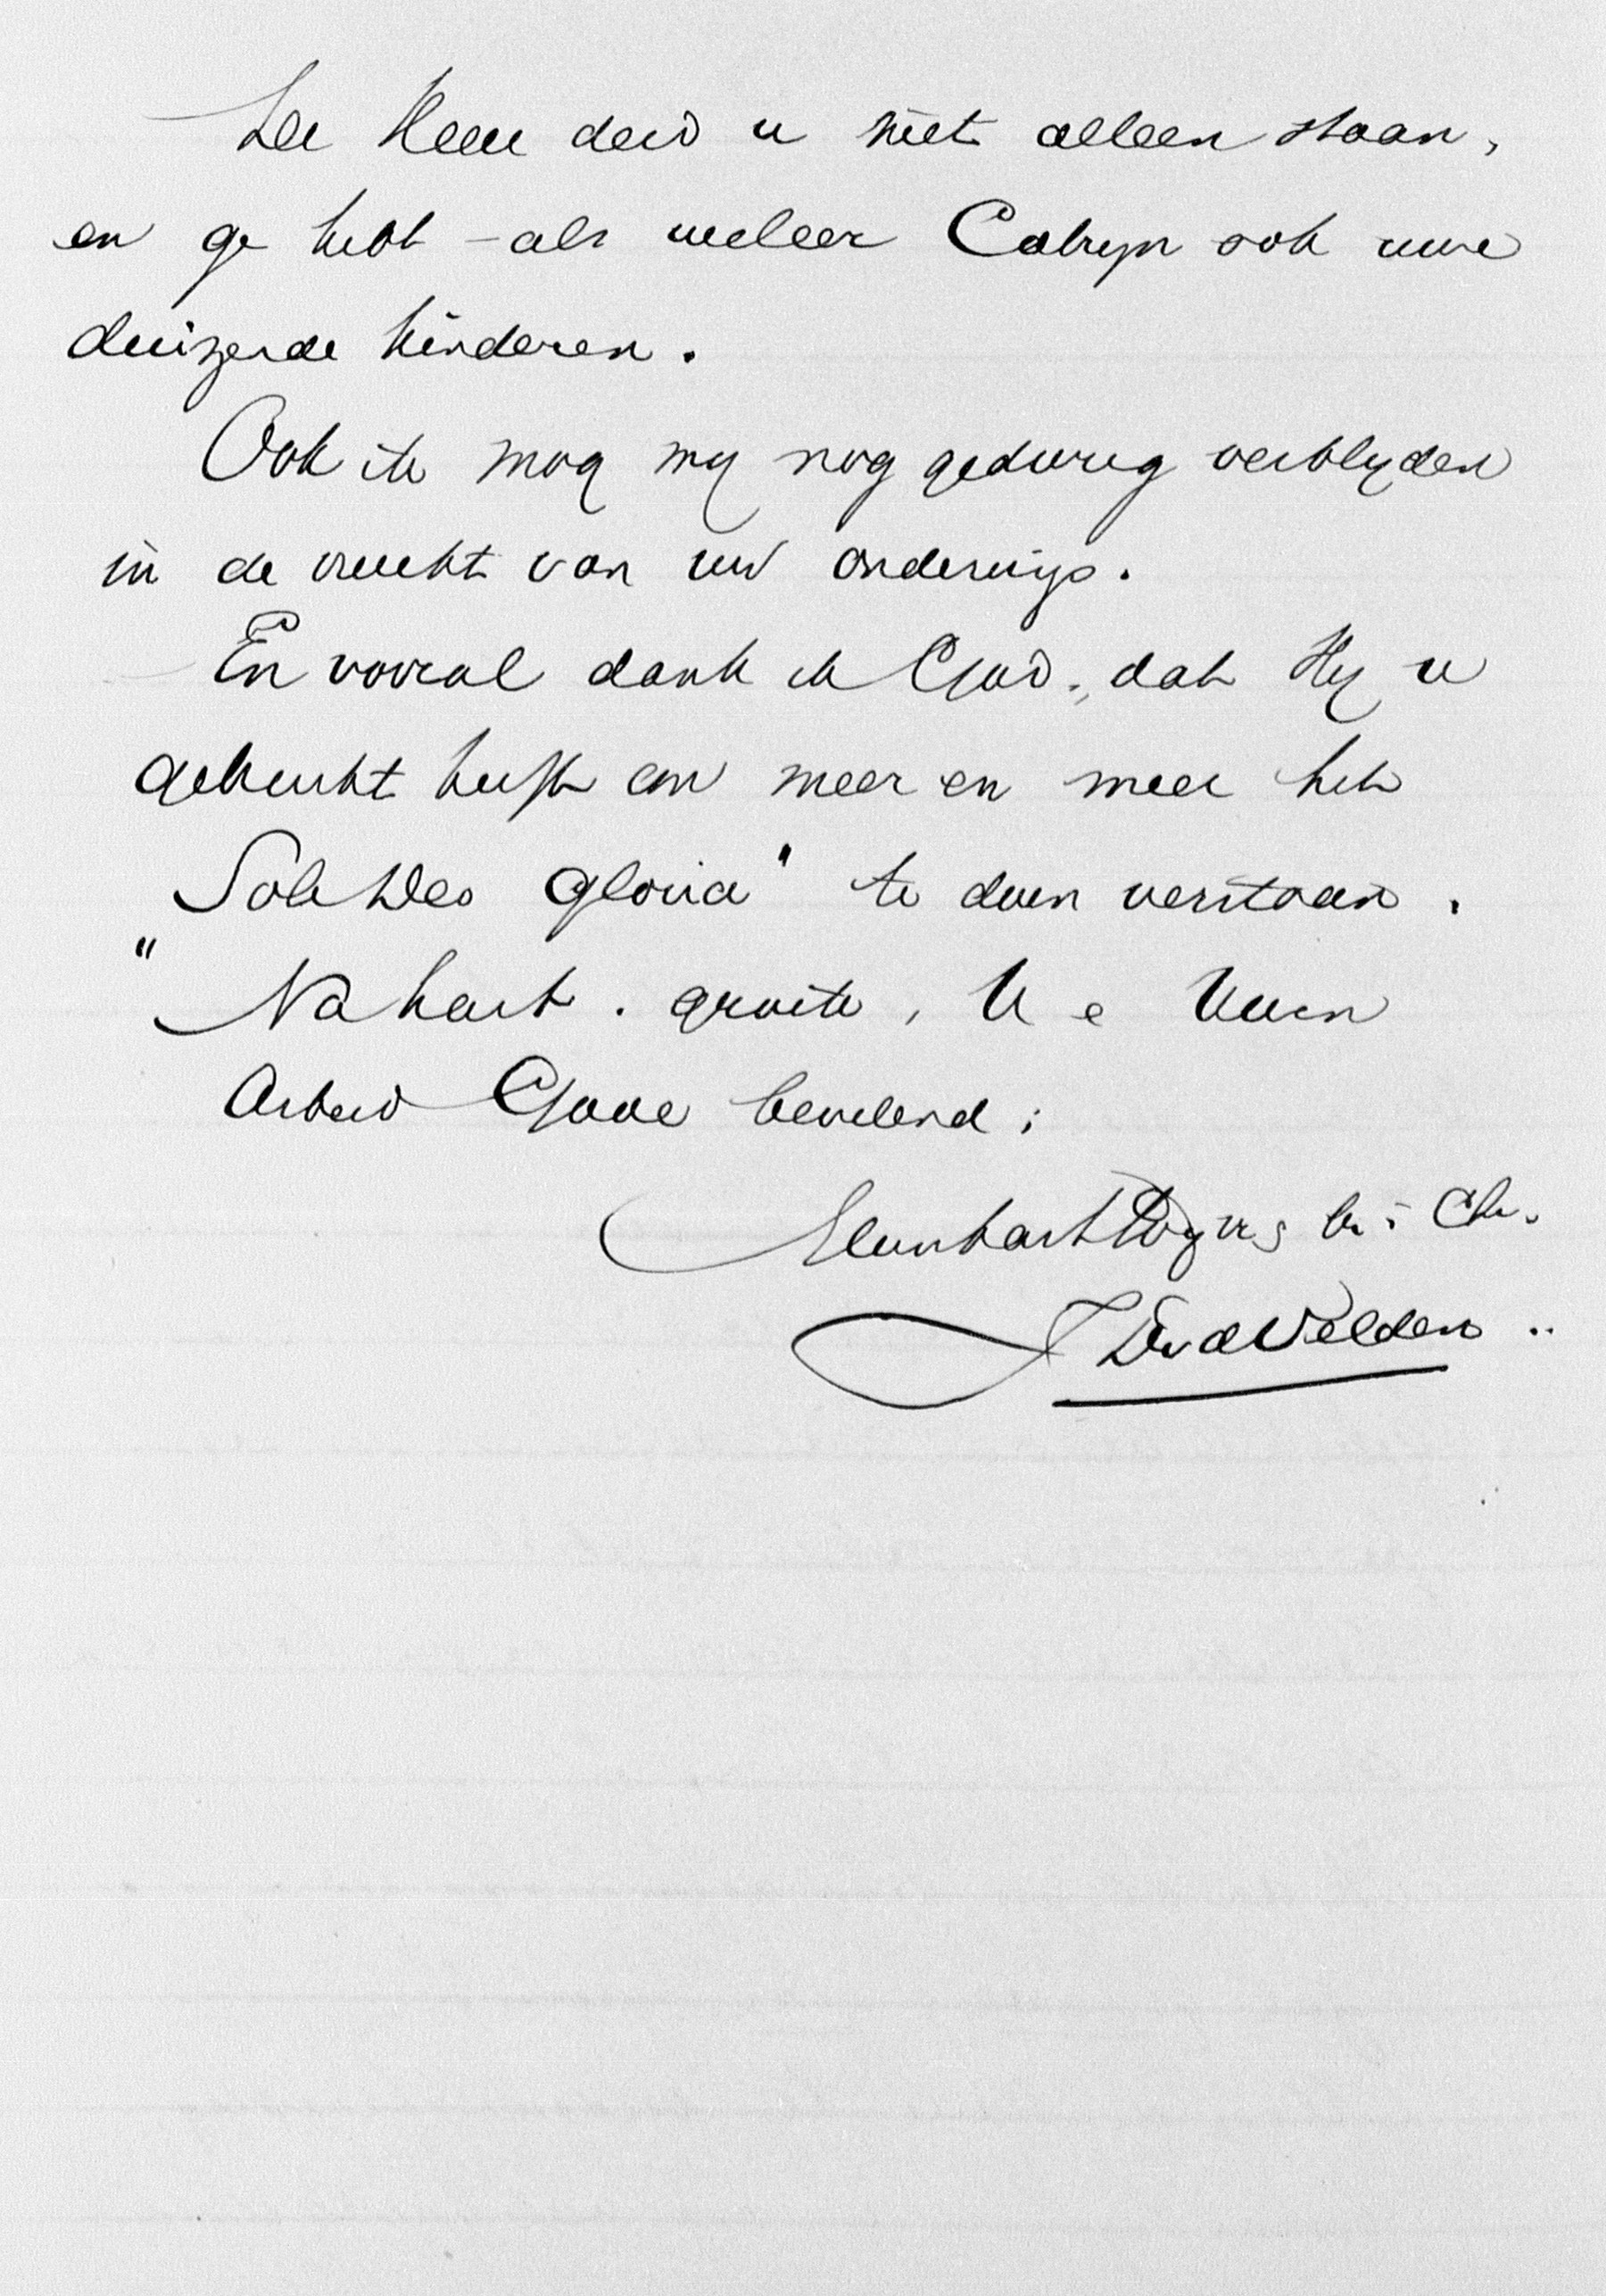 De Heer deed u niet alleen staan,
en ge hebt - als weleer Calvyn ook uwe
duizende kinderen.
Ook ik mag my nog gedurig verblyden
in de vrucht van uw onderwijs.
En vooral dank ik God, dat Hy u
gebruikt heeft om meer en meer het
"Soli Deo gloria" te doen verstaan.
Na hart. groete, U e Uwen
Arbeid Gode bevelend;
Uw br. i. Ch.
J D v d Velden